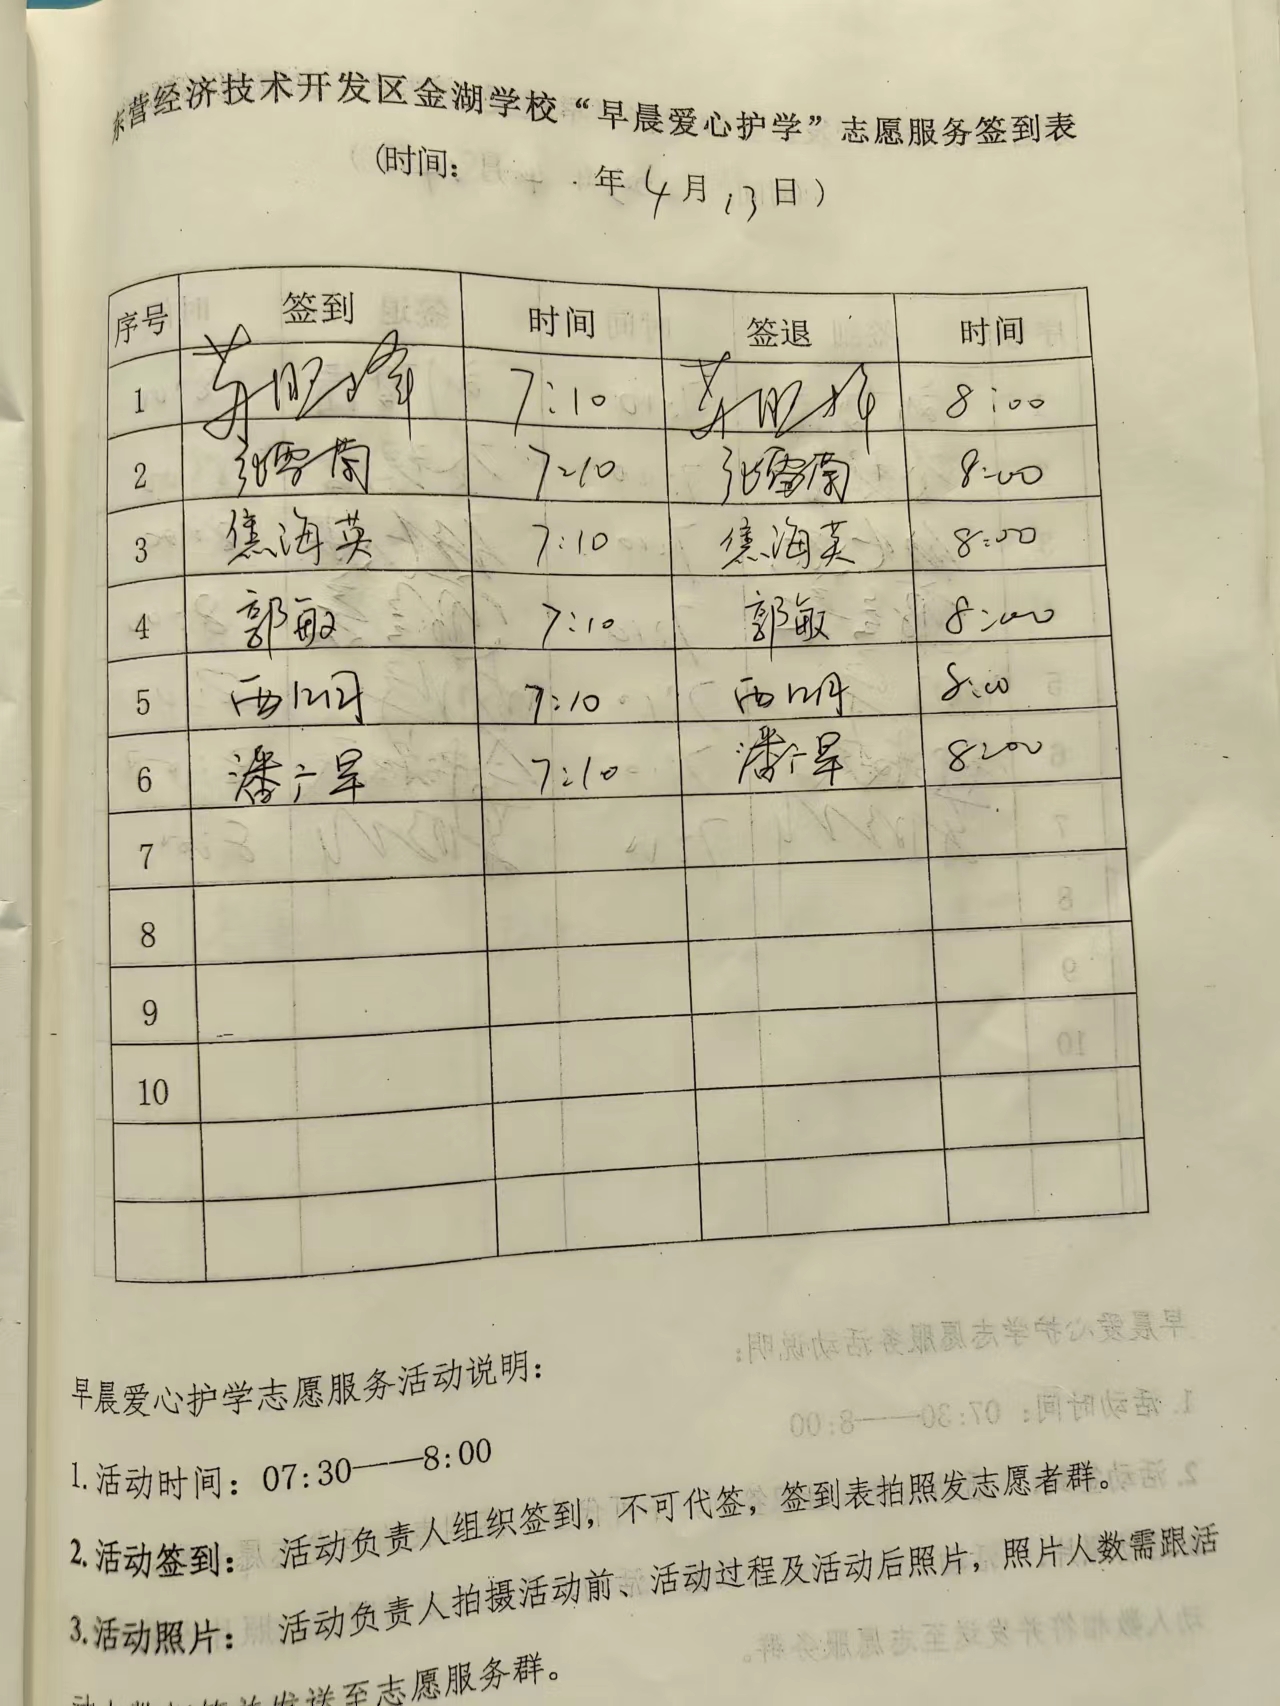 东营经济技术开发区金湖学校“早晨爱心护学”志愿服务签到表
(时间: 年4月13日)
序号 签到 时间 签退 时间
1 7:10 8:00
2 张雪菊 7:10 张雪菊 8:00
3 焦海英 7:10 焦海英 8:00
4 郭敏 7:10 郭敏 8:00
5 7:10 8:00
6 7:10 8:00
7
8
9
10
早晨爱心护学志愿服务活动说明:
1.活动时间: 07:30——8:00
2.活动签到: 活动负责人组织签到，不可代签，签到表拍照发志愿者群。
3.活动照片: 活动负责人拍摄活动前、活动过程及活动后照片，照片人数需跟活
发送至志愿服务群。